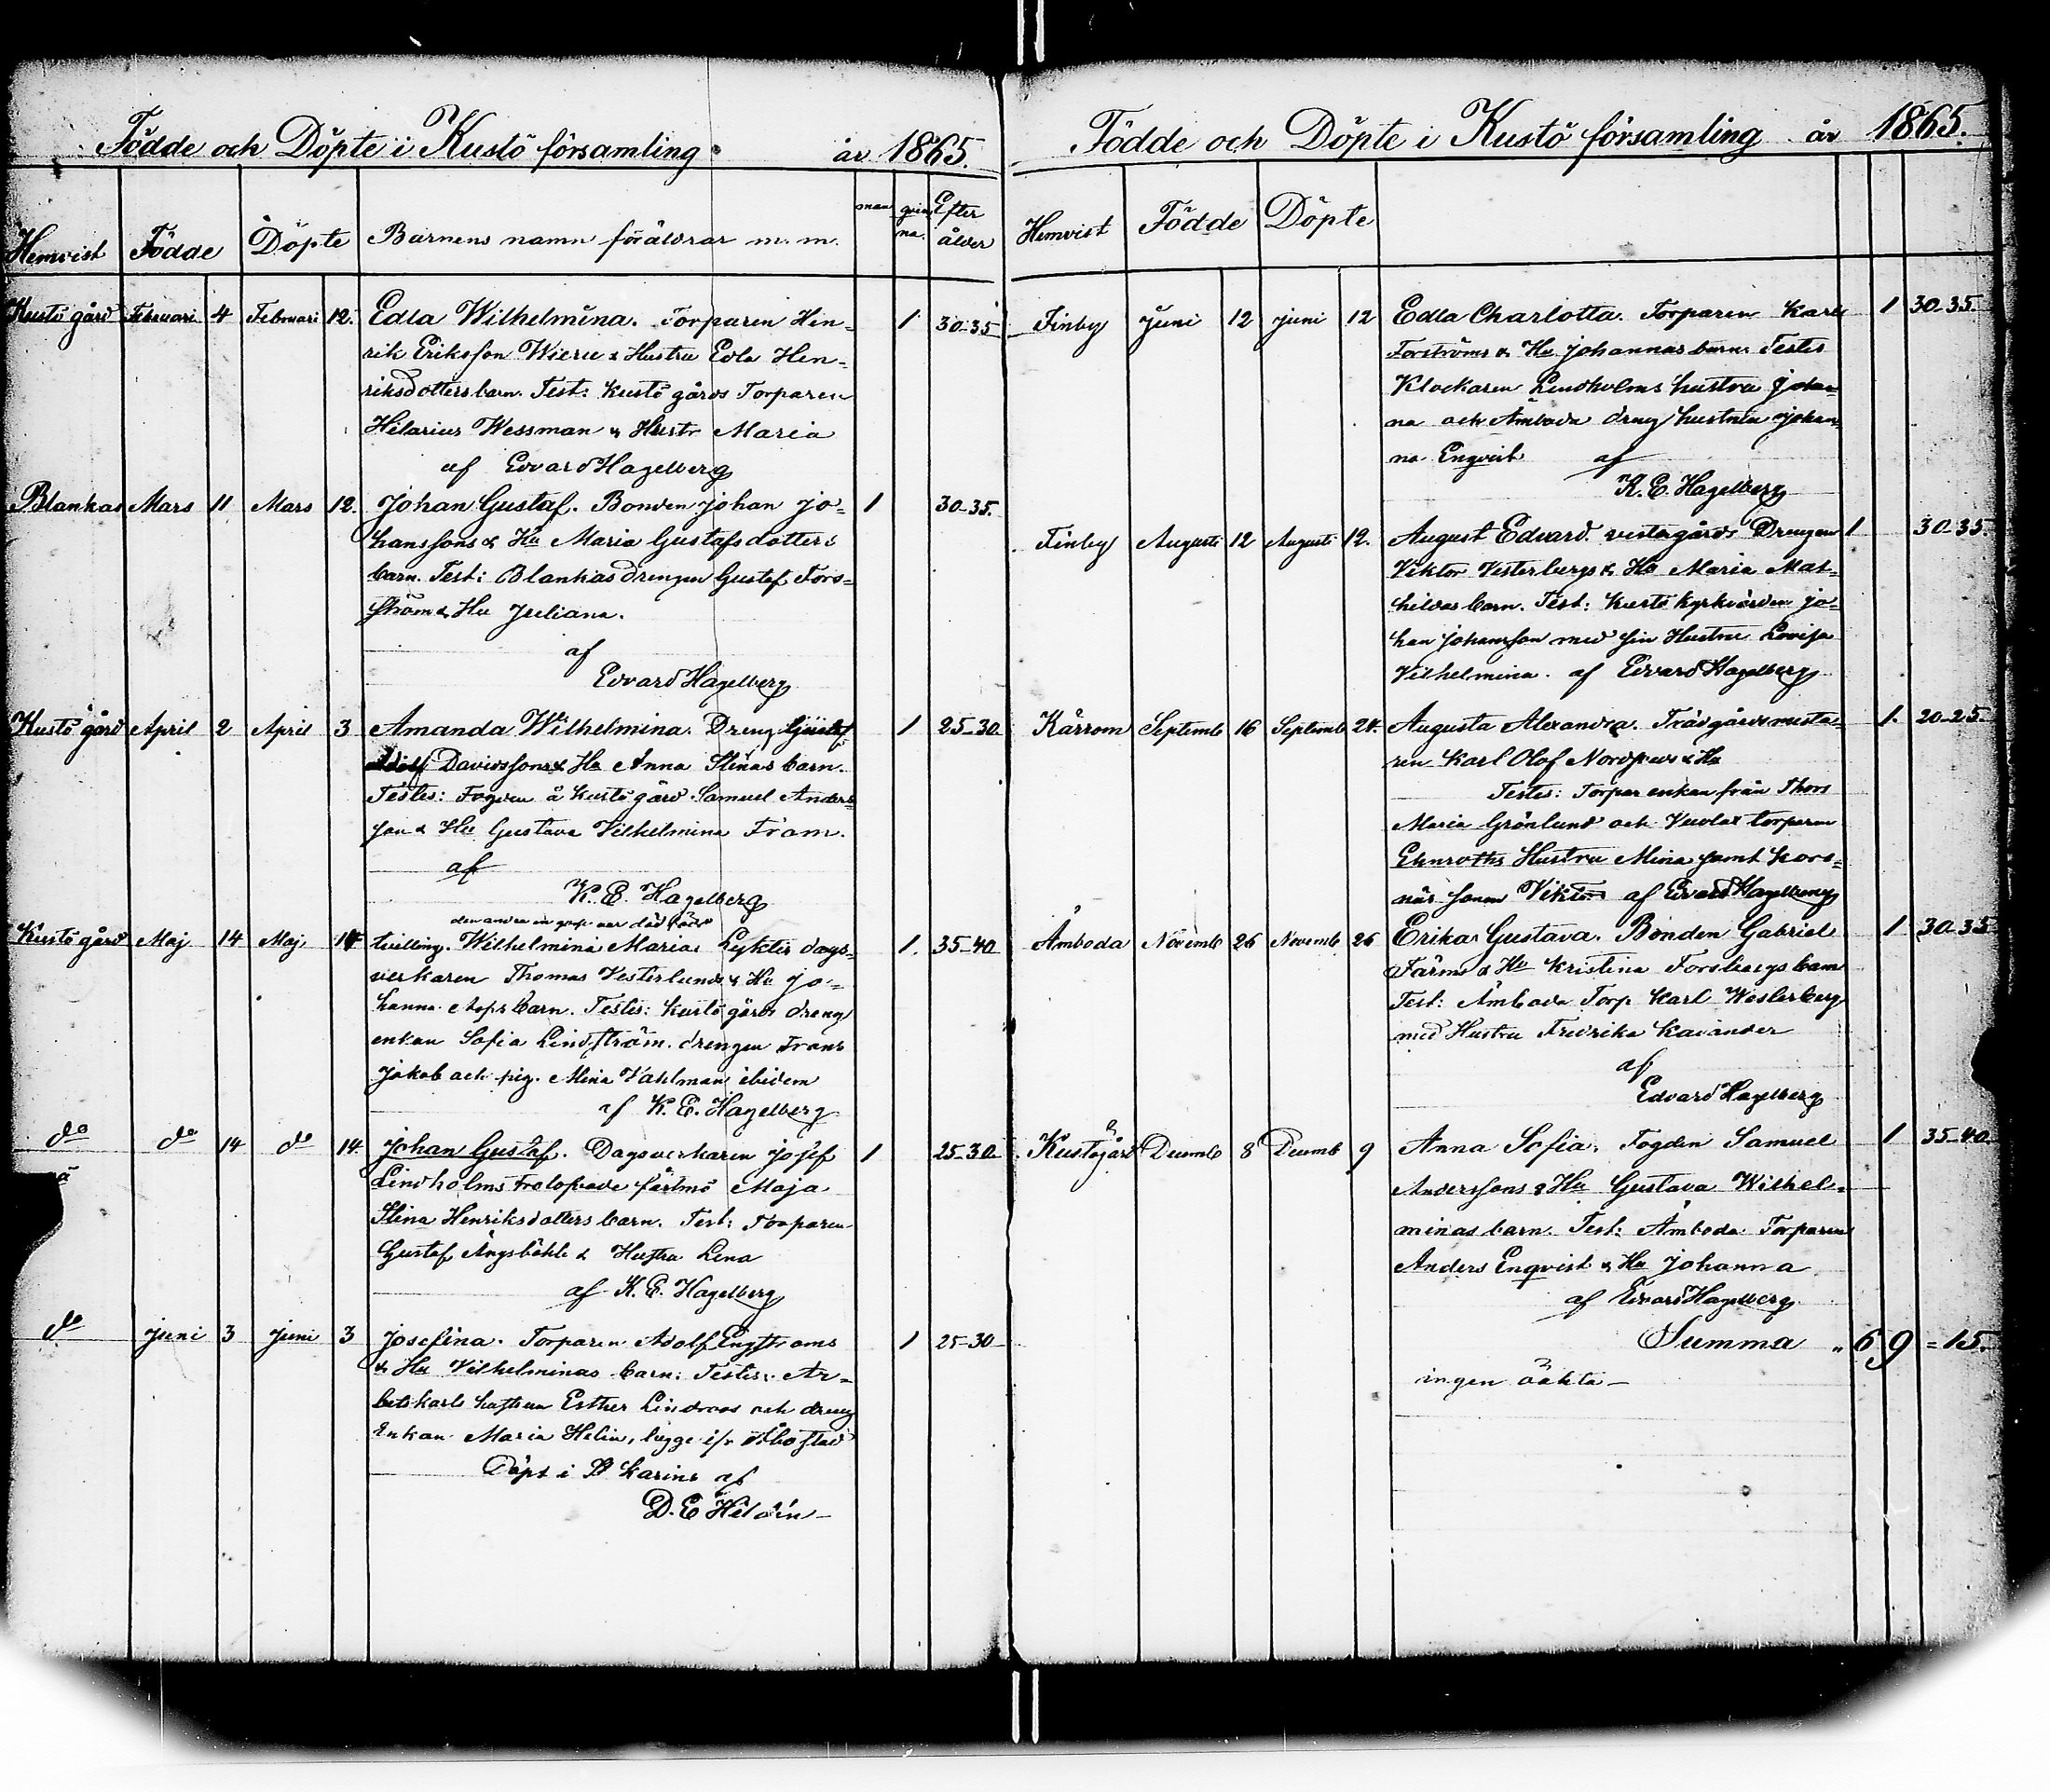 Födde och Döpte i Kustö församling år 1865.
Hemvist Födde Döpte Barnens namn föräldrar m. m. man qvin na. Efter ålder
Kustö gård Februari 4 Februari 12. Edla Wilhelmina. Torparen Hin= 1 30-35
rik Eriksson Wieru & Hustru Edla Hen=
riksdotters barn. Test: Kustö gårds Torparen
Hilarius Wessman & Hustr Maria
af Edvard Hagelberg
Blankas Mars 11 Mars 12. Johan Gustaf. Bonden Johan Jo= 1 30-35.
hanssons & Hu Maria Gustafsdotters
barn. Test: Blankas drengen Gustaf Fors=
ström & Hu Juliana.
af
Edvard Hagelberg
Kustö gård April 2 April 3 Amanda Wilhelmina. Dreng Gustaf 1 25-30
Adolf Davidssons & Hu Anna Stinas barn.
Testes: Fogden å Kustö gård Samuel Anders
son & Hu Gustava Vilhelmina Fram.
af
K. E. Hagelberg
den andra var död född
Kustö gård Maj 14 Maj 14 tvilling. Wilhelmina Maria. Lyktes dags= 1. 35-40
verkaren Thomas Vesterlunds & Hu Jo=
hanna barn. Testes: Kustö gårds dreng
enkan Sofia Lindström. drengen Frans
Jakob och pig. Mina Vahlman ibidem
af K. E. Hagelberg
do do 14 do 14 Johan Gustaf. Dagsverkaren Josef 1 25-30
Lindholms Trolofvade fästmö Maja
Stina Henriksdotters barn. Test: Torparen
Gustaf Ängsbäkk & Hustru Lena
af K. E. Hagelberg
do Juni 3 Juni 3 Josefina. Torparen Adolf Engströms 1 25-30
& Hu Vilhelminas barn: Testes: Ar=
betskarls hustrun Esther Lindroos och dreng
Enkan Maria Helin, begge ifr Åbo stad
Döpt i St Karins af
D. E Hildén
Födde och Döpte i Kustö församling år 1865.
Hemvist Födde Döpte
Finby Juni 12 juni 12 Edla Charlotta. Torparen Karl 1 30-35.
Forströms & Hu Johannas barn. Testes
Klockaren Lindholms hustru Johan=
na och Ämboda dreng hustrun Johan=
na Enqvist af
K. E. Hagelberg
Finby Augusti 12 Augusti 12. August Edvard. vestergårds Drengen 1 30-35.
Viktor Vesterbergs & Hu Maria Mat=
hildas barn. Test: Kustö Kyrkvärden Jo=
han Johansson med sin Hustru Lovisa
Vilhelmina. af Edvard Hagelberg
Kärrom Septemb 16 Septemb 24. Augusta Alexandra. Trädgårdsmästa= 1. 20-25.
ren Karl Olof & Hu
Testes: Torpar enkan från Thors
Maria Grönlund och torparen
Ehnroths Hustru Mina samt
Viktor af Edvard Hagelberg
Ämboda Novemb 26 Novemb 26 Erika Gustava. Bonden Gabriel 1 30-35
Färms & Hu Kristina Forsbergs barn
Test: Ämboda Torp Karl Westerberg
med Hustru Fredrika Kavander
af
Edvard Hagelberg
Kustö gård Decemb 8 Decemb 9 Anna Sofia. Fogden Samuel 1 35-40.
Anderssons & Hu Gustava Wilhel=
minas barn. Test: Ämboda Torparen
Anders Enqvist & Hu Johanna
af Edvard Hagelberg
Summa " 6 9 = 15.
ingen oäkta